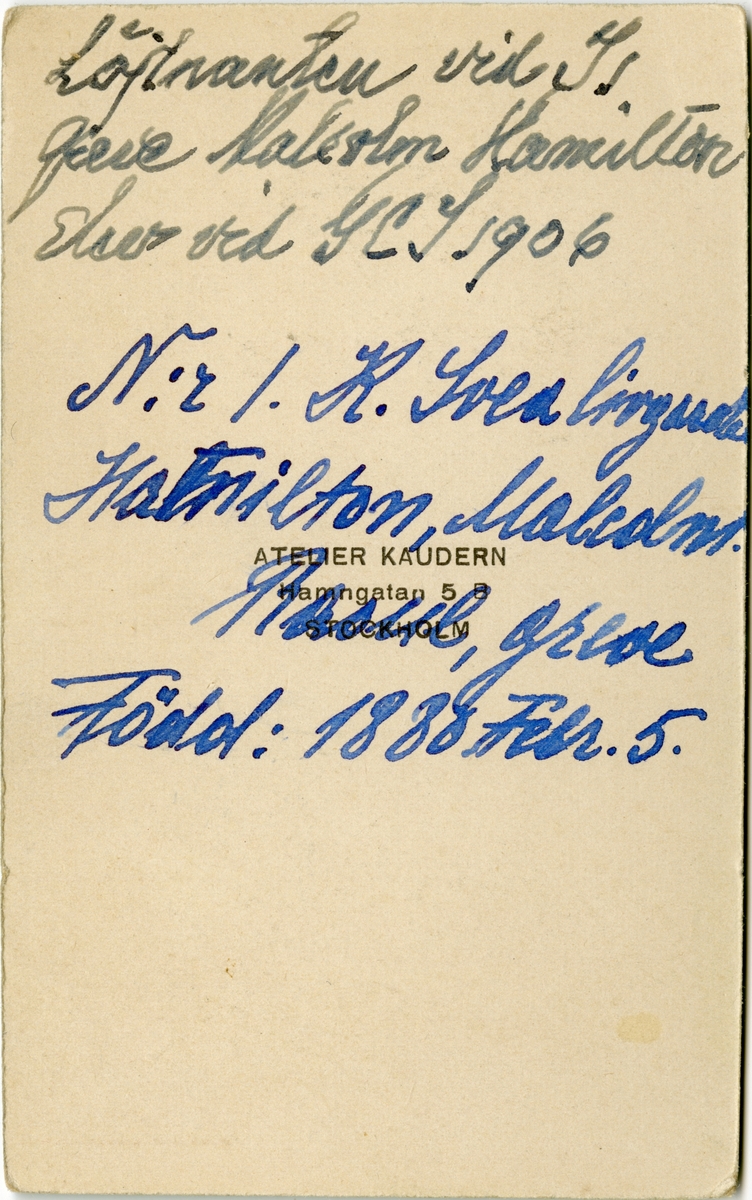 Löjtnanten vid I1
Greve Malcolm Hamilton
Elev vid GCI 1906
N:r 1. K. Svea livgarde
Hamilton, Malcolm.
ATELIER KAUDERN
Hamngatan 5 B
STOCKHOLM
greve
Född: 1880 Febr. 5.